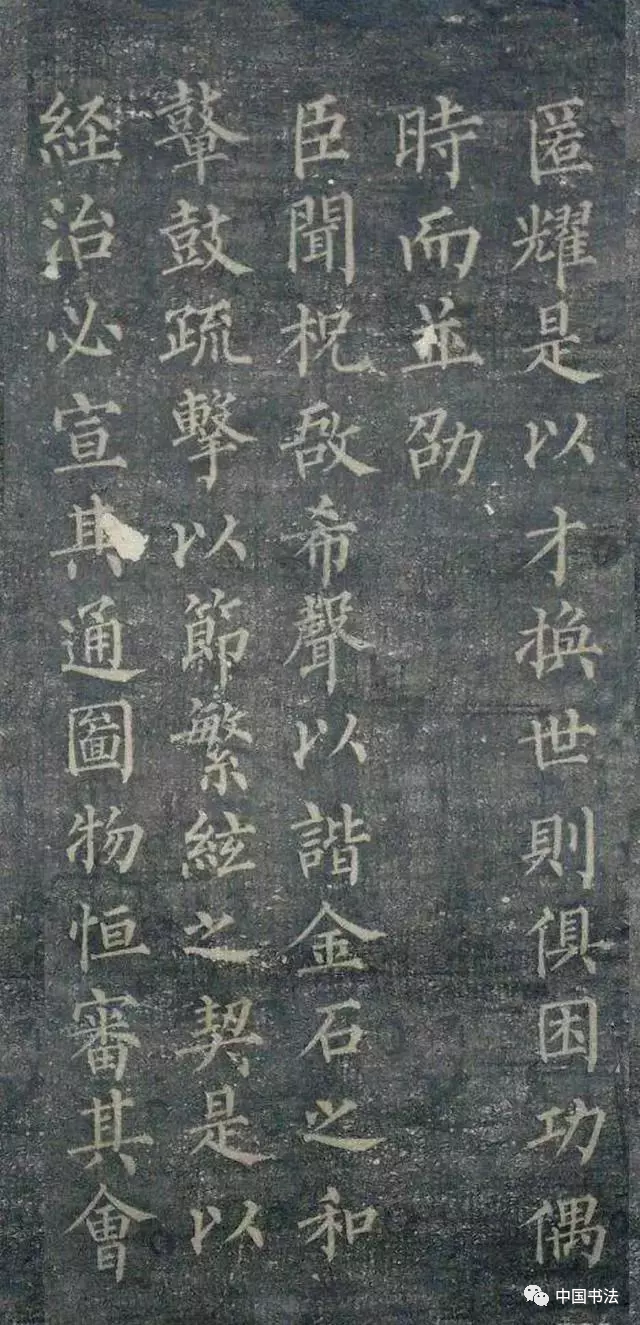 匿耀是以才換世則俱困功偶
時而並劭
臣聞柷敔希聲以諧金石之和
鼙鼓疏擊以節繁絃之契是以
経治必宣其通圖物恒審其會
中国书法